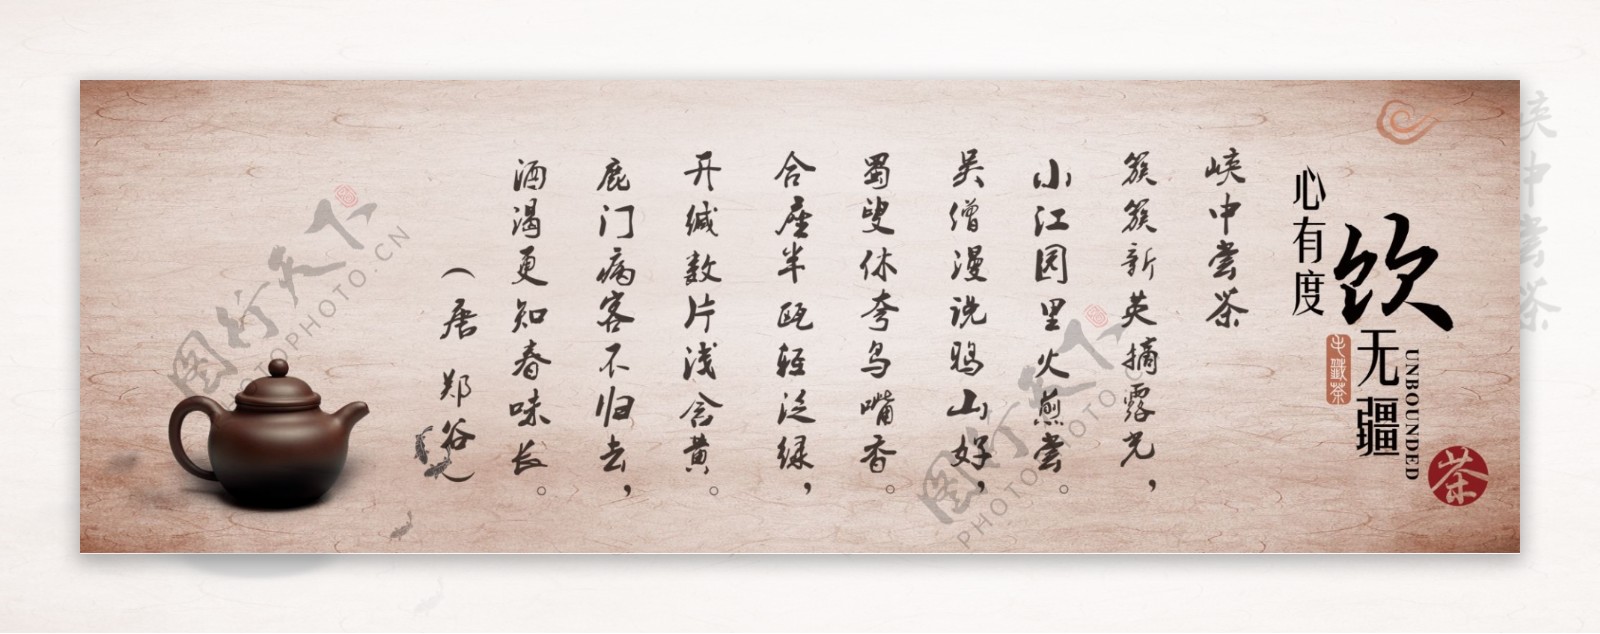 峡中尝茶
心有度
饮无疆
UNBOUNDED
茶
峡中尝茶
簇簇新英摘露光，
小江园里火煎尝。
吴僧漫说鸦山好，
蜀叟休夸鸟嘴香。
合座半瓯轻泛绿，
开缄数片浅含黄。
鹿门病客不归去，
酒渴更知春味长。
（唐 郑谷）
图行天下
PHOTOPHOTO.CN
图行天下
PHOTOPHOTO.CN